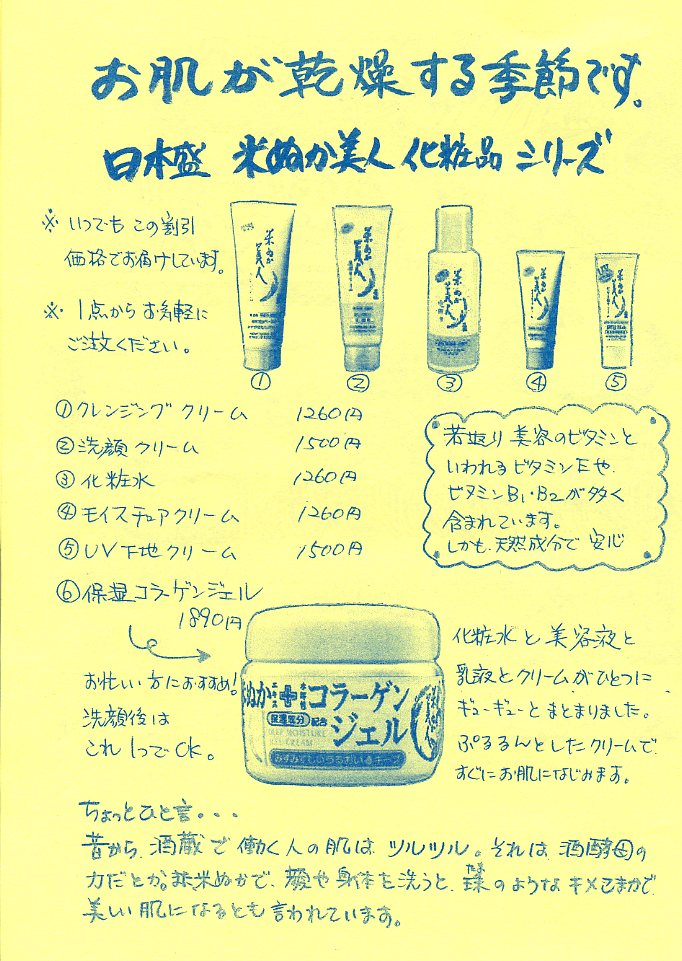 お肌が乾燥する季節です。
日本盛 米ぬか美人 化粧品 シリーズ
※ いつでも この割引
価格でお届けしています。
※ 1点から お気軽に
ご注文ください。
米ぬか美人
米ぬか美人
米ぬか美人
米ぬか美人
米ぬか美人
① ② ③ ④ ⑤
①クレンジング クリーム 1260円
②洗顔 クリーム 1500円
③化粧水 1260円
④モイスチュアクリーム 1260円
⑤UV下地クリーム 1500円
⑥保湿コラーゲンジェル
1890円
若返り 美容のビタミンと
いわれる ビタミンEや、
ビタミンB1・B2が多く
含まれています。
しかも、天然成分で 安心
お忙しい方におすすめ!
洗顔後は
これ1つでOK。
米ぬか エキス + 水溶性 コラーゲン
保湿成分 配合 ジェル
DEEP MOISTURE
GEL CREAM
みずみずしいうるおいをキープ
化粧水と美容液と
乳液とクリームがひとつに
ギューギューとまとまりました。
ぷるるんとしたクリームで
すぐにお肌になじみます。
ちょっとひと言・・・
昔から、酒蔵で働く人の肌は ツルツル。それは、酒酵母の
力だとか。また米ぬかで、顔や身体を洗うと、珠のようなキメこまかで
たま
美しい肌になるとも言われています。